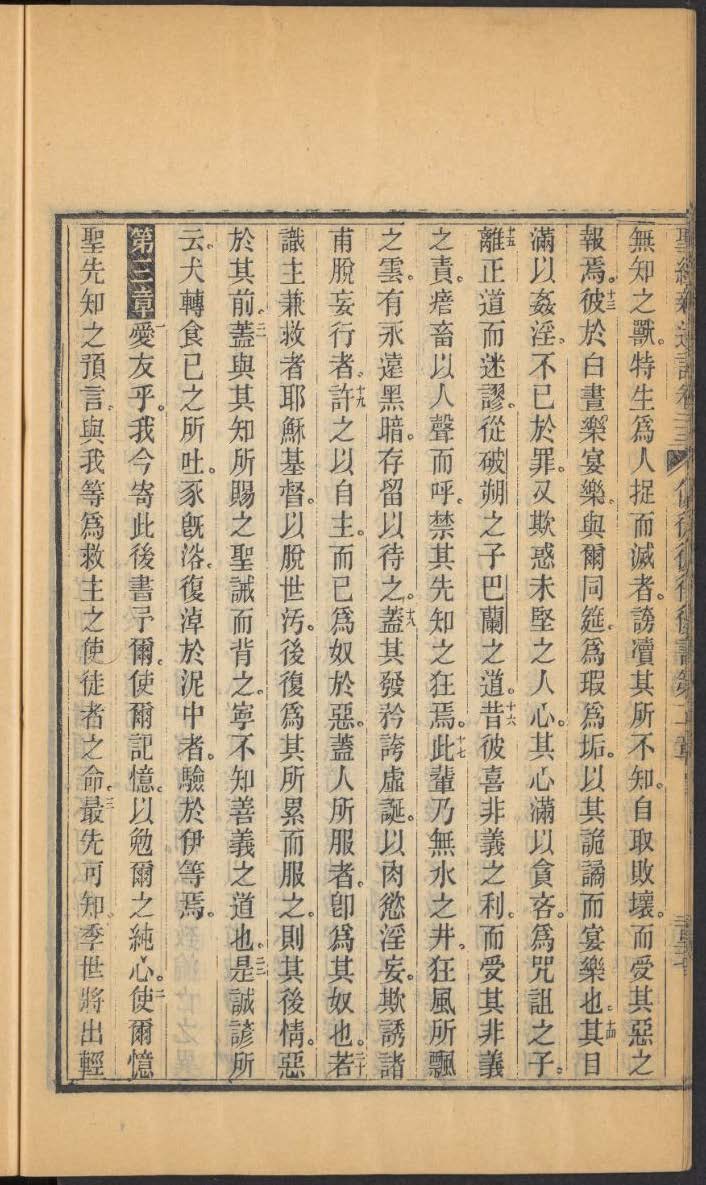 無知之獸。特生爲人捉而滅者。謗凟其所不知。自取敗壞。而受其惡之
報焉。十三彼於白晝樂宴樂。與爾同筵。爲瑕爲垢。以其詭譎而宴樂也。十四其目
滿以姦淫。不已於罪。又欺惑未堅之人心。其心滿以貪吝。爲咒詛之子。
十五離正道而迷謬。從破朔之子巴蘭之道。十六昔彼喜非義之利。而受其非義
之責。瘖畜以人聲而呼。禁其先知之狂焉。十七此輩乃無水之井。狂風所飄
之雲。有永遠黑暗。存留以待之。十八蓋其發矜誇虛誕。以肉慾淫妄。欺誘諸
甫脫妄行者。十九許之以自主。而已爲奴於惡。蓋人所服者。卽爲其奴也。二十若
識主兼救者耶穌基督。以脫世汚。後復爲其所累而服之。則其後情。惡
於其前。二一蓋與其知所賜之聖誡而背之。寧不知善義之道也。二二是誠諺所
云。犬轉食已之所吐。豕旣浴。復淖於泥中者。驗於伊等焉。
第三章一愛友乎。我今寄此後書予爾。使爾記憶。以勉爾之純心。二使爾憶
聖先知之預言。與我等爲救主之使徒者之命。三最先可知。季世將出輕